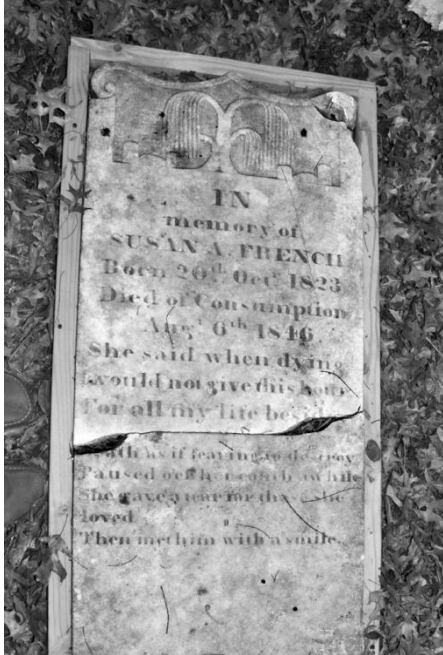 IN
memory of
SUSAN A. FRENCH
Born 20th Oct. 1823
Died of Consumption
Augt 6th 1846
She said when dying
I would not give this hour
For all my life beside
as if fearing to destroy
Paused o'er her couch awhile
She gave a tear for those she
loved
Then met him with a smile.